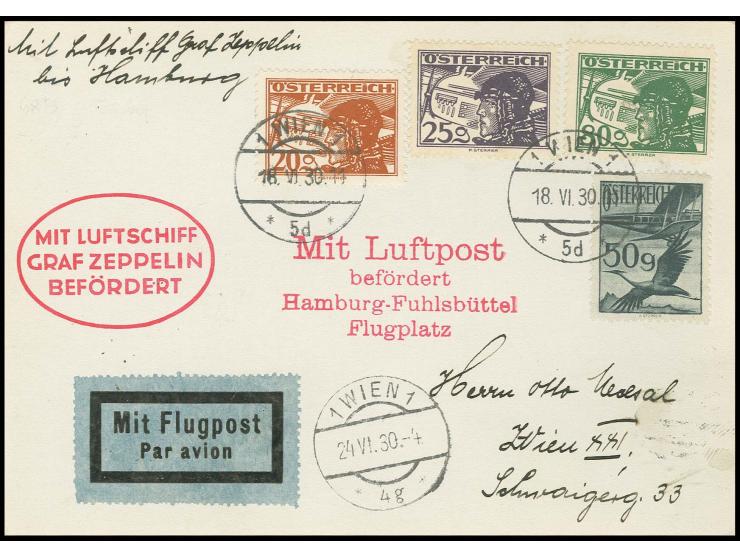 Mit Luftschiff Graf Zeppelin
bis Hamburg
ÖSTERREICH
20g
ÖSTERREICH
25g
ÖSTERREICH
80g
ÖSTERREICH
50g
1 WIEN 1
18. VI. 30. 11
* 5d *
1 WIEN 1
18. VI. 30.
* 5d
MIT LUFTSCHIFF
GRAF ZEPPELIN
BEFÖRDERT
Mit Luftpost
befördert
Hamburg-Fuhlsbüttel
Flugplatz
Mit Flugpost
Par avion
1 WIEN 1
24 VI. 30.-4
* 4g *
Herrn Otto
Wien XXI.
Schwaigerg. 33